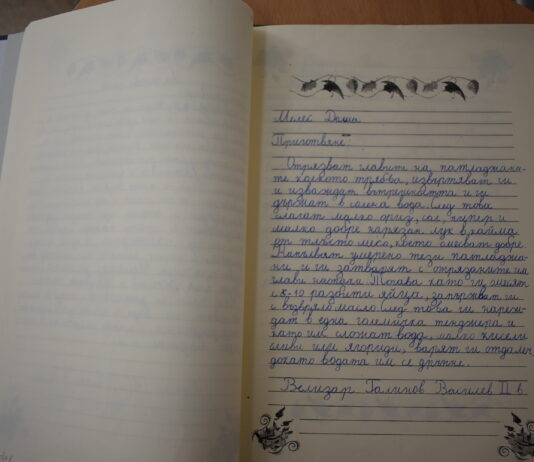 Мелес Долма
Приготвяне:
Отрязват главите на патладжани-
те колкото трябва, извъртяват ги
и изваждат вътрешността и ги
държат в солена вода. След това
слагат малко ориз, сол, пипер и
малко добре нарязан лук в кайма
от тлъсто месо, което омесват добре.
Напълват умерено тези патладжа-
ни и ги затварят с отрязаните им
глави настрани. Тогава като ги омият
с 8-10 разбити яйца, запържват ги
с възвряло масло. След това ги нареж-
дат в една големичка тенджера и
като им сложат вода, малко кисели
сливи или ягориди, варят ги
докато водата им се дръпне.
Велизар Галинов Василев II в